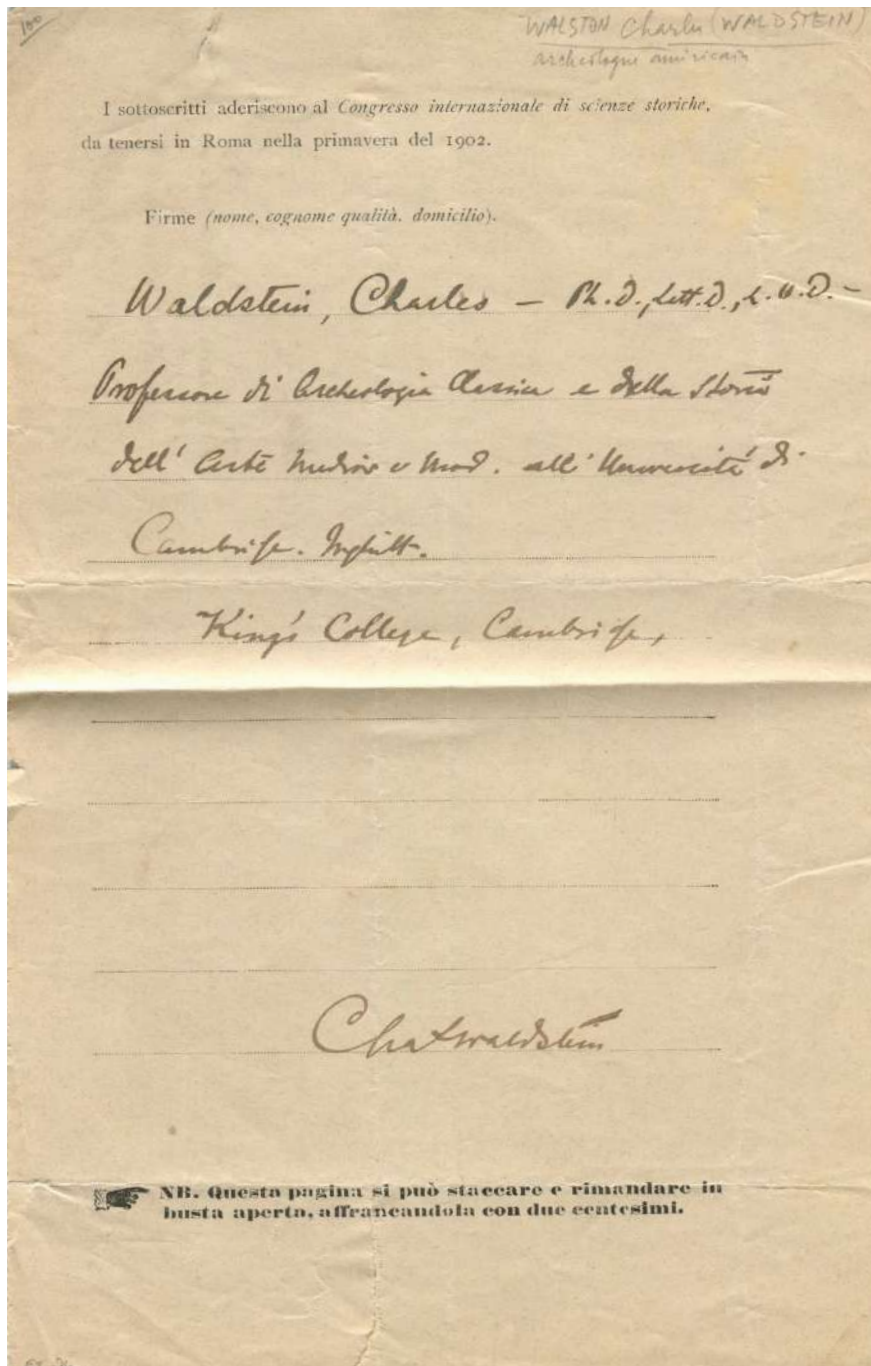 100
WALSTON Charles (WALDSTEIN)
archéologue américain
I sottoscritti aderiscono al Congresso internazionale di scienze storiche,
da tenersi in Roma nella primavera del 1902.
Firme (nome, cognome qualità. domicilio).
Waldstein, Charles — Ph.D., Litt.D., L.H.D. —
Professore di Archeologia Classica e della Storia
dell' Arte e Mod. all' Università di
Cambridge. Inghilt.
King's College, Cambridge,
Cha Waldstein
NB. Questa pagina si può staccare e rimandare in
busta aperta, affrancandola con due centesimi.